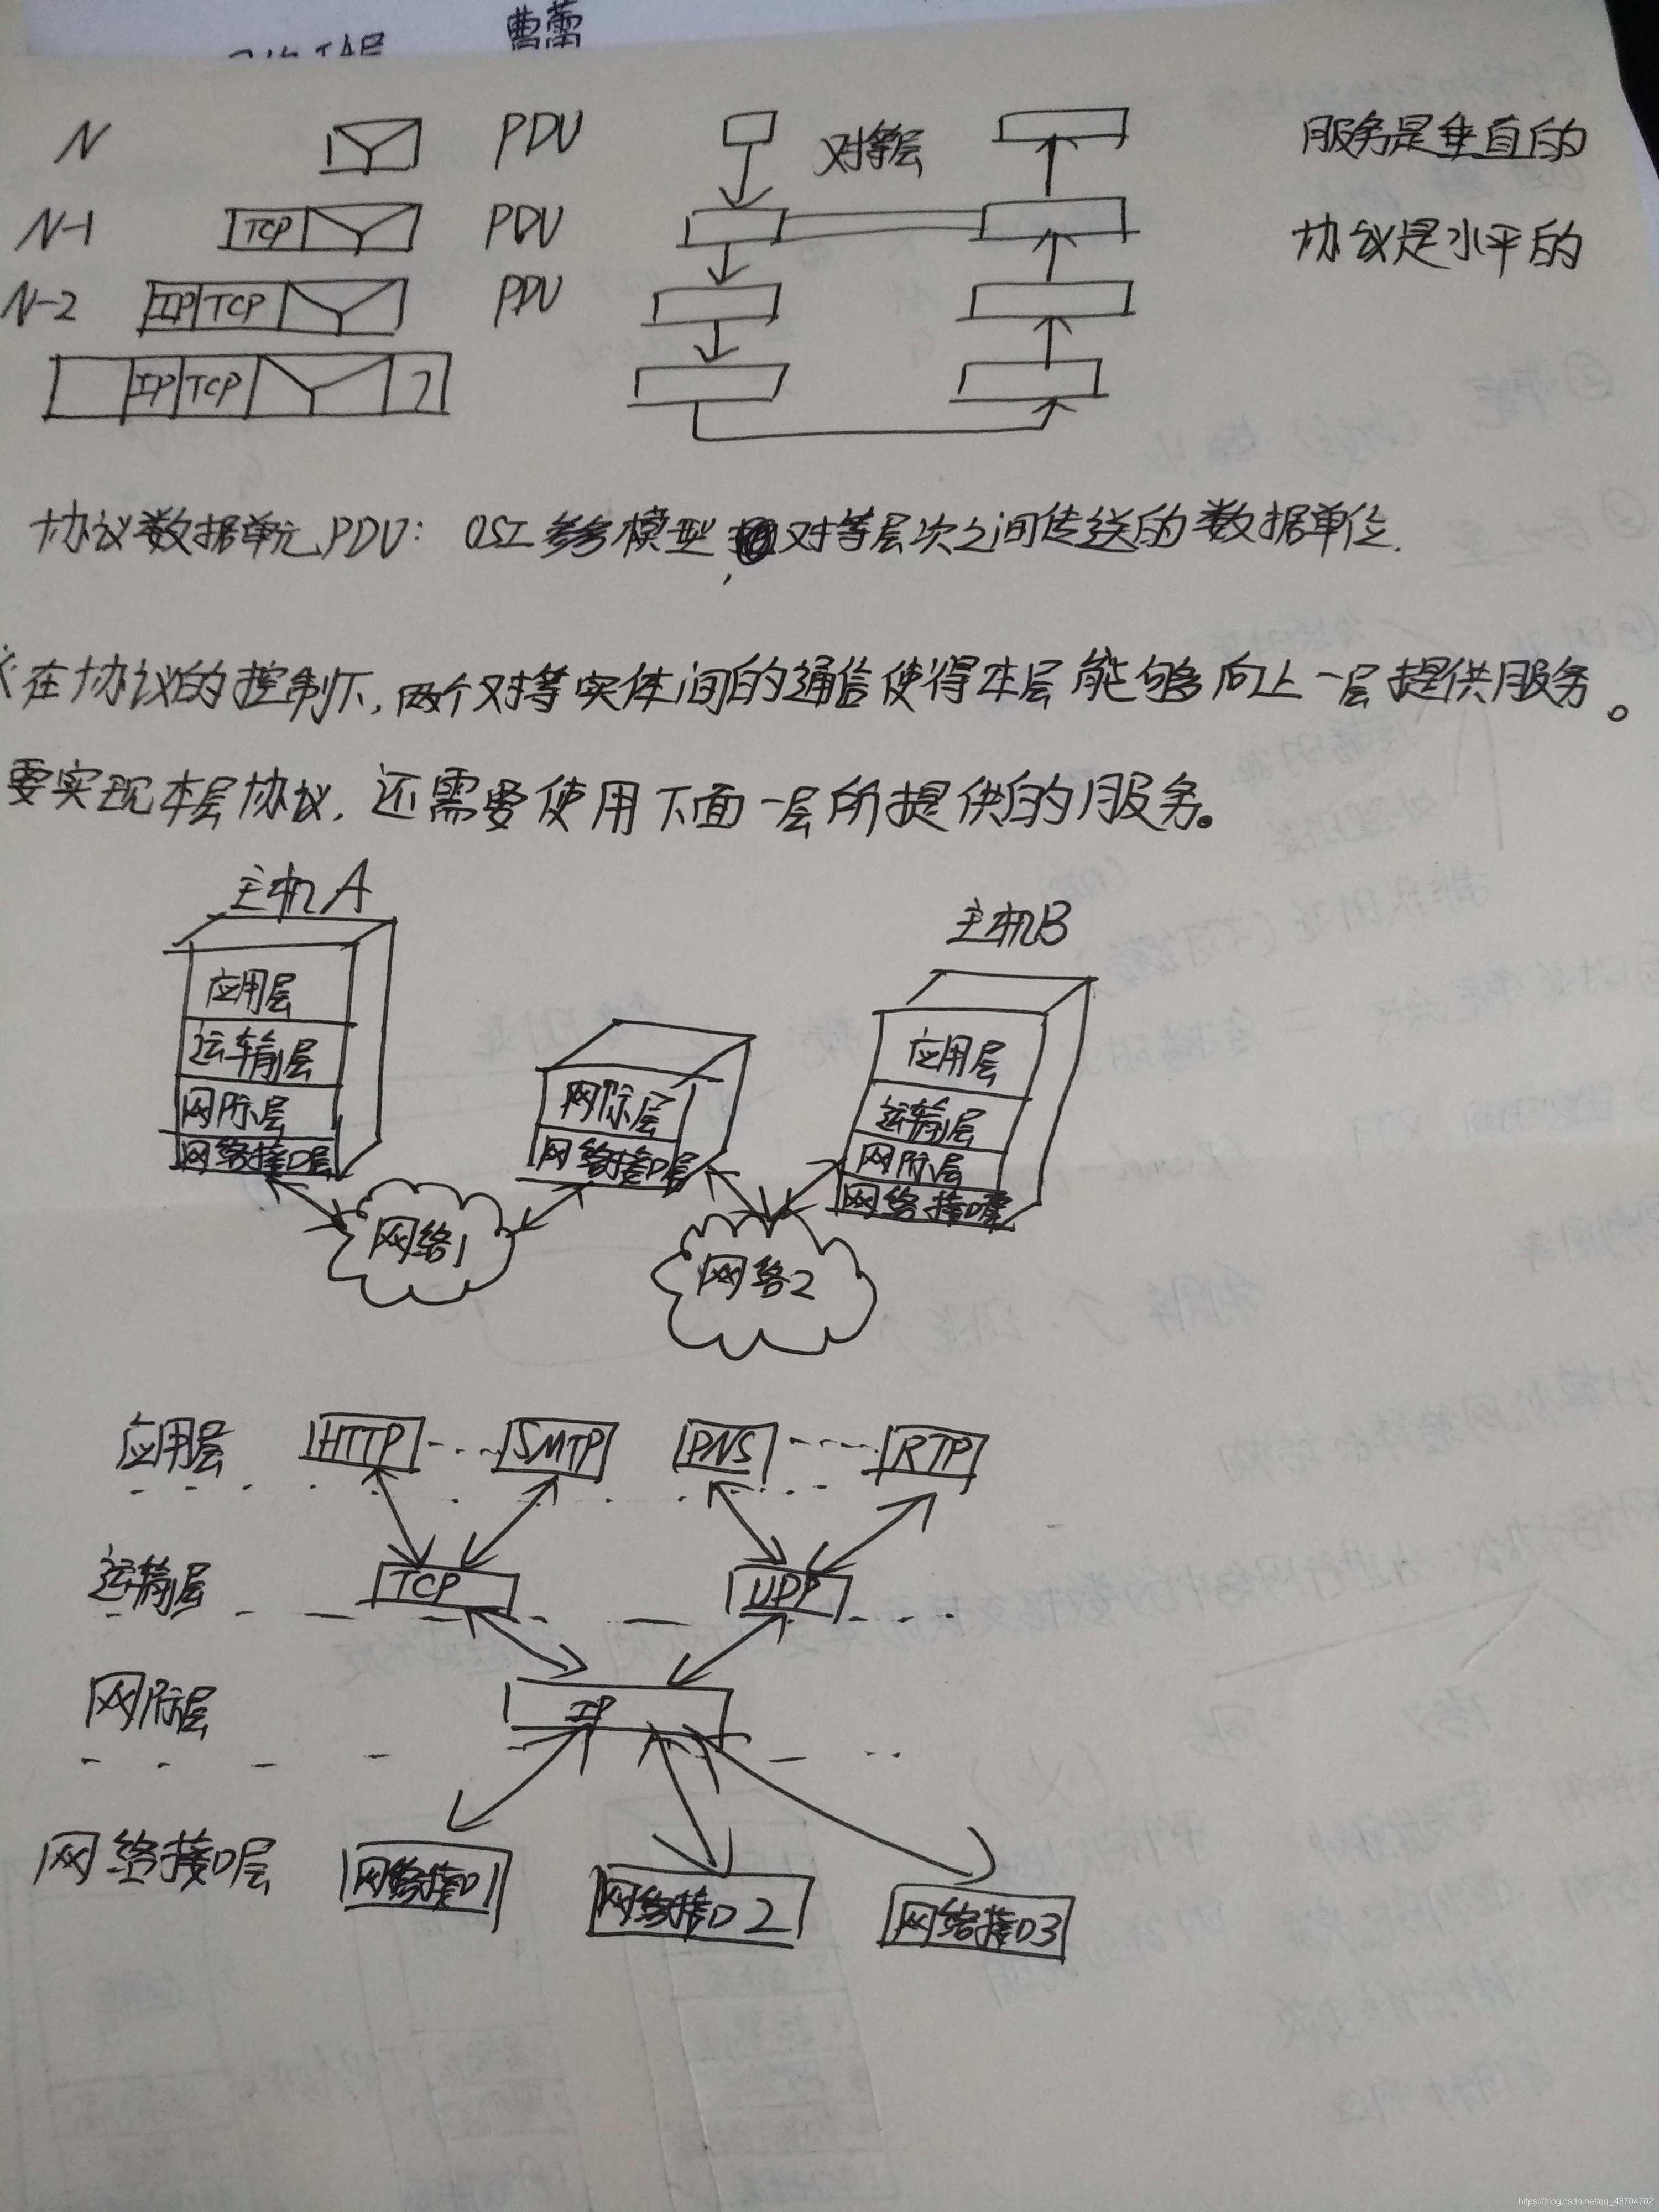 曹蕾
N PDU 对等层 服务是垂直的
N-1 TCP PDU 协议是水平的
N-2 IP TCP PDU
IP TCP
协议数据单元PDU: OSI参考模型 对等层次之间传送的数据单位.
在协议的控制下,两个对等实体间的通信使得本层能够向上一层提供服务。
要实现本层协议,还需要使用下面一层所提供的服务。
主机A
主机B
应用层
运输层
网际层
网络接口层
网际层
网络接口层
应用层
运输层
网际层
网络接口层
网络1
网络2
应用层 HTTP SMTP DNS RTP
运输层 TCP UDP
网际层 IP
网络接口层 网络接口1 网络接口2 网络接口3
https://blog.csdn.net/qq_43704702